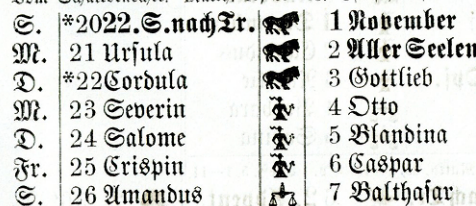 S. *20 22. S. nach Tr. 1 November
M. 21 Ursula 2 Aller Seelen
D. *22 Cordula 3 Gottlieb.
M. 23 Severin 4 Otto
D. 24 Salome 5 Blandina
Fr. 25 Crispin 6 Caspar
S. 26 Amandus 7 Balthasar